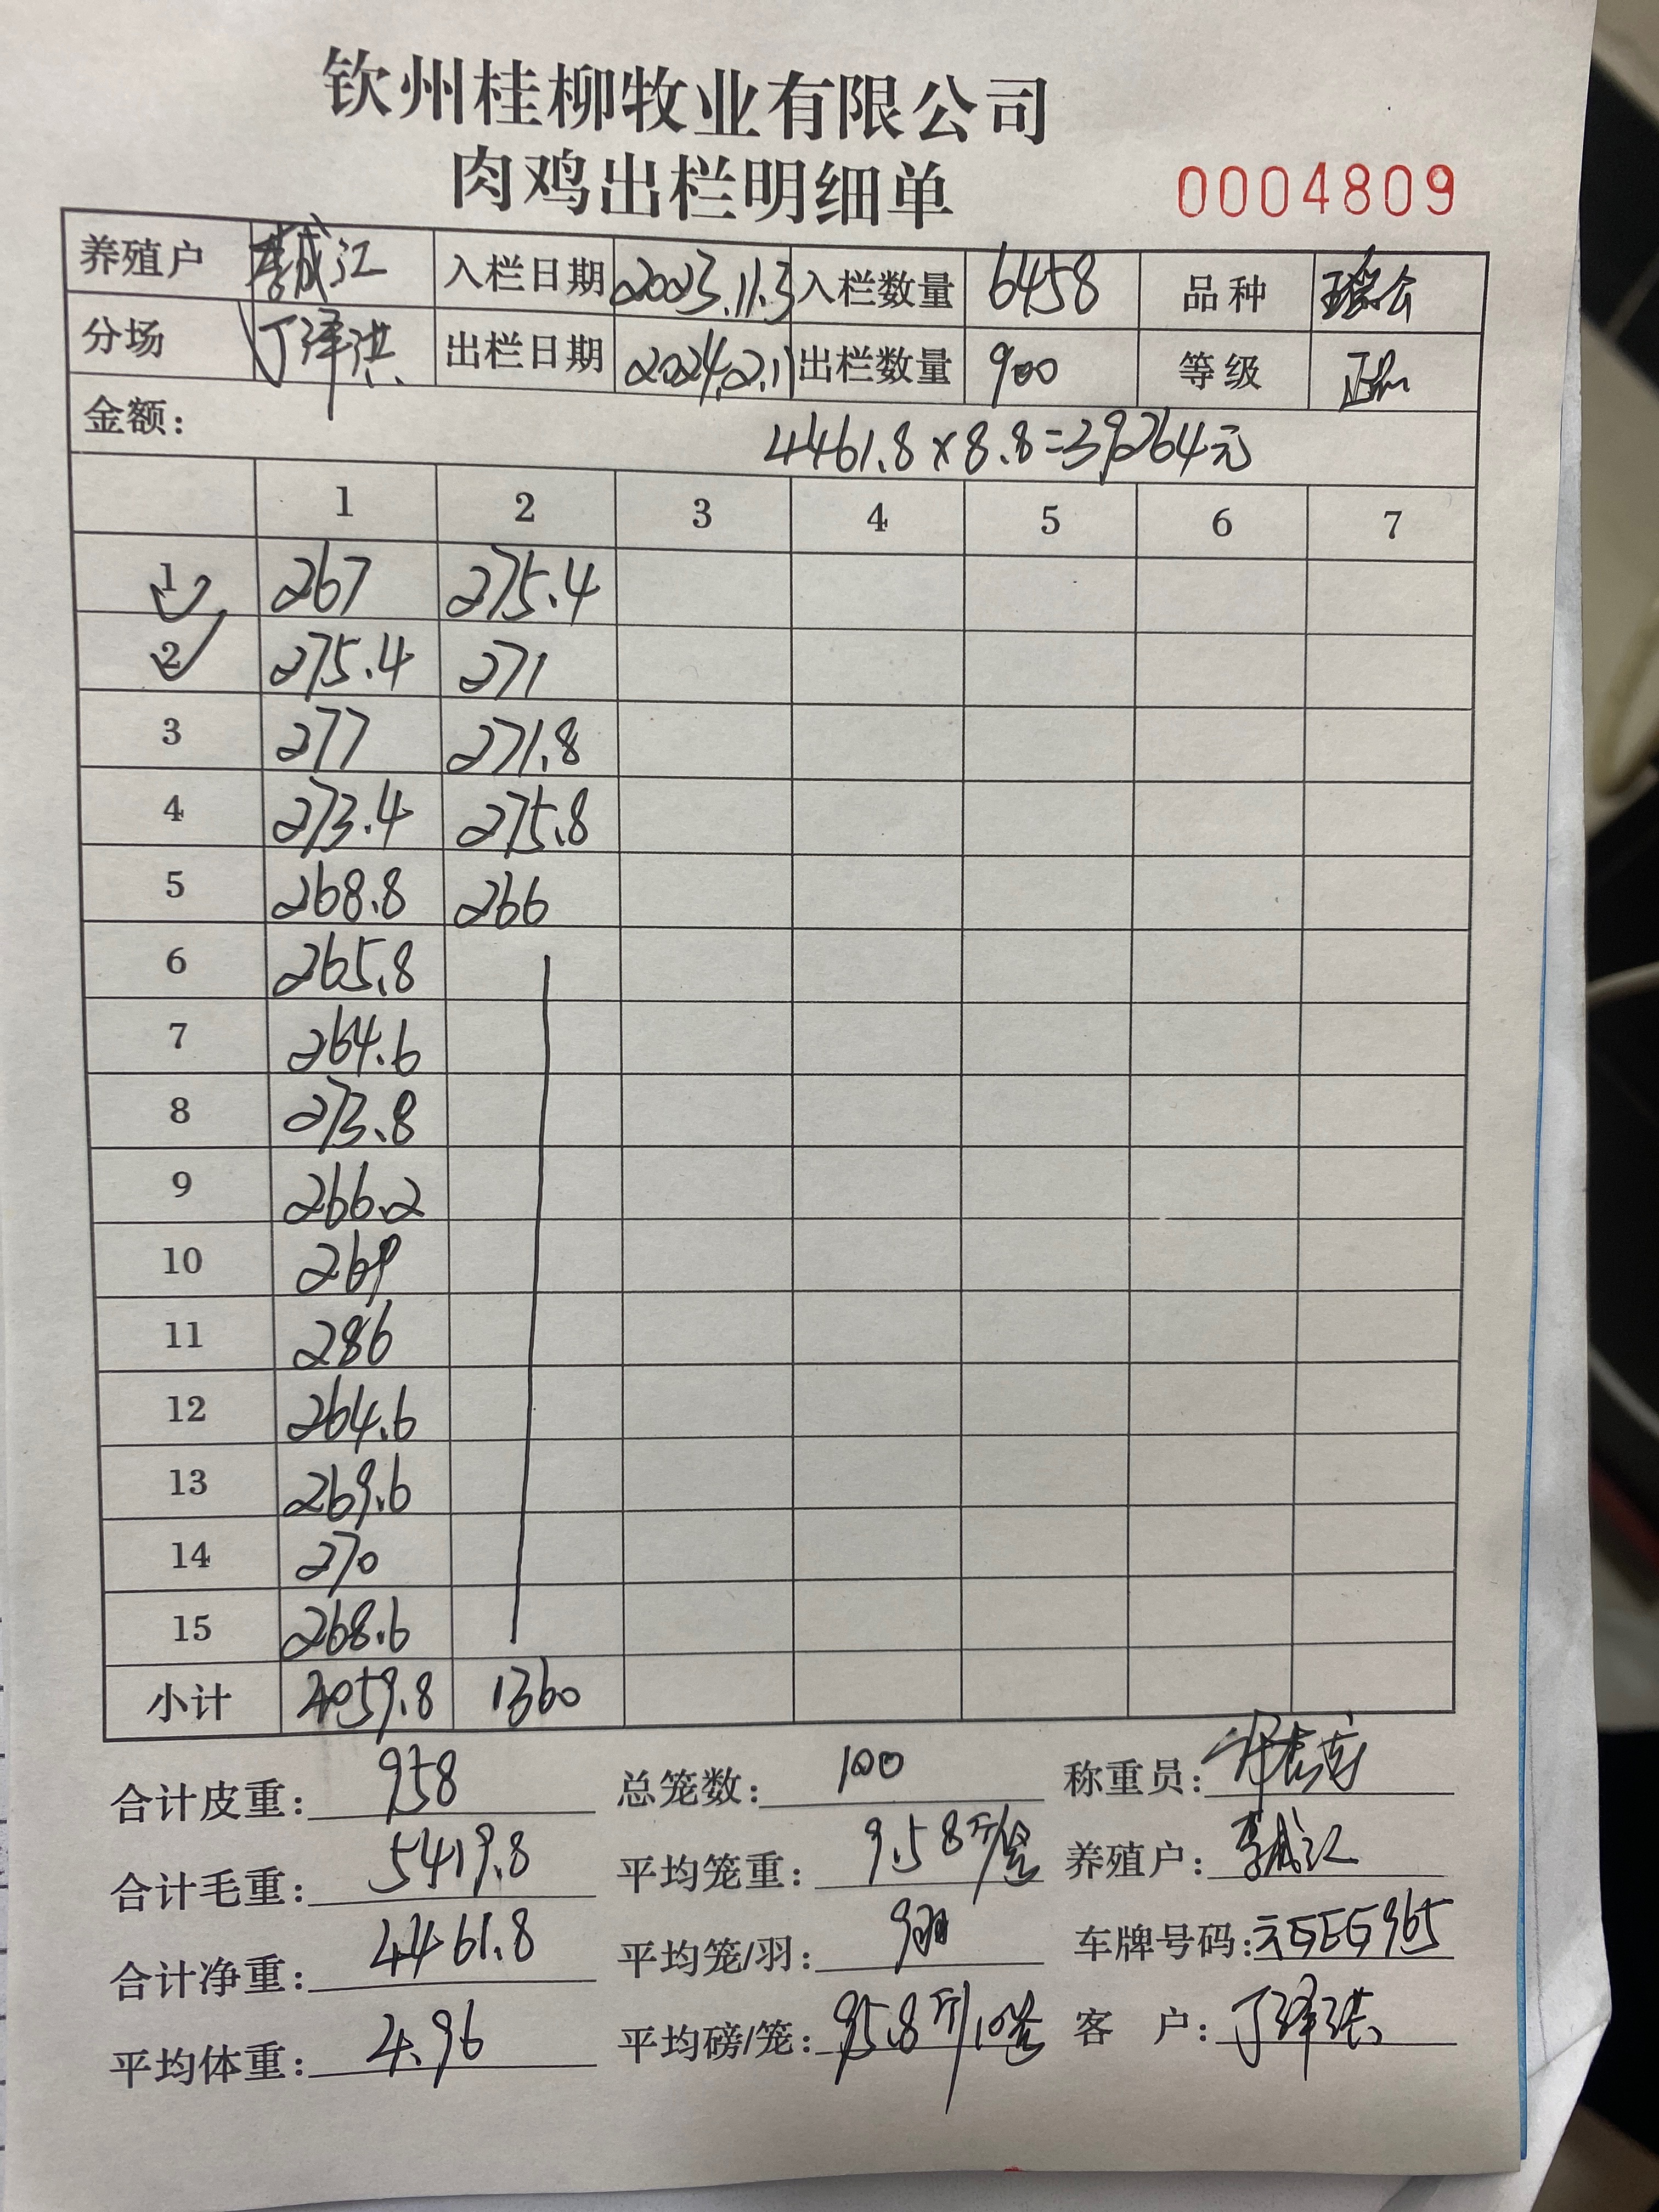 钦州桂柳牧业有限公司
肉鸡出栏明细单 0004809
养殖户 李成江 入栏日期 2023.11.3 入栏数量 6458 品种
分场 丁泽洪 出栏日期 2024.2.11 出栏数量 900 等级
金额: 4461.8×8.8=39264元
1 2 3 4 5 6 7
1 267 275.4
2 275.4 271
3 277 271.8
4 273.4 275.8
5 268.8 266
6 265.8
7 264.6
8 273.8
9 266.2
10 269
11 286
12 264.6
13 269.6
14 270
15 268.6
小计 4059.8 1360
合计皮重: 958 总笼数: 100 称重员:
合计毛重: 5419.8 平均笼重: 9.58斤/笼 养殖户: 李成江
合计净重: 4461.8 平均笼/羽: 9羽 车牌号码:
平均体重: 4.96 平均磅/笼: 95.8斤/10笼 客 户: 丁泽洪